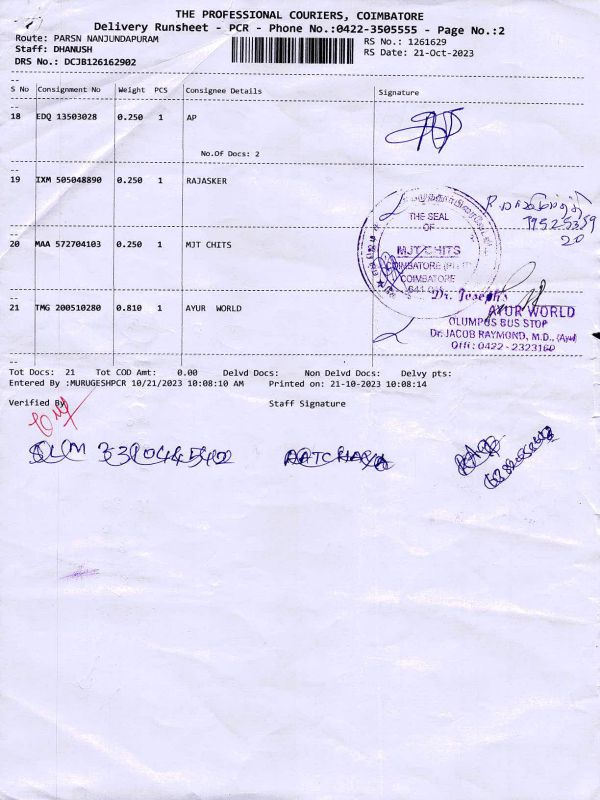 THE PROFESSIONAL COURIERS, COIMBATORE
Delivery Runsheet - PCR - Phone No.:0422-3505555 - Page No.:2
Route: PARSN NANJUNDAPURAM
RS No.: 1261629
Staff: DHANUSH
RS Date: 21-Oct-2023
DRS No.: DCJB126162902
S No Consignment No Weight PCS Consignee Details Signature
18 EDQ 13503028 0.250 1 AP
No.Of Docs: 2
19 IXM 505048890 0.250 1 RAJASKER
20 MAA 572704103 0.250 1 MJT CHITS
THE SEAL
OF
MJT CHITS
COIMBATORE
21 TMG 200510280 0.810 1 AYUR WORLD
Dr. Joseph's
AYUR WORLD
OLUMPUS BUS STOP
Dr. JACOB RAYMOND, M.D., (Ayu)
Off: 0422 - 2323160
Tot Docs: 21 Tot COD Amt: 0.00 Delvd Docs: Non Delvd Docs: Delvy pts:
Entered By :MURUGESHPCR 10/21/2023 10:08:10 AM Printed on: 21-10-2023 10:08:14
Verified By Staff Signature